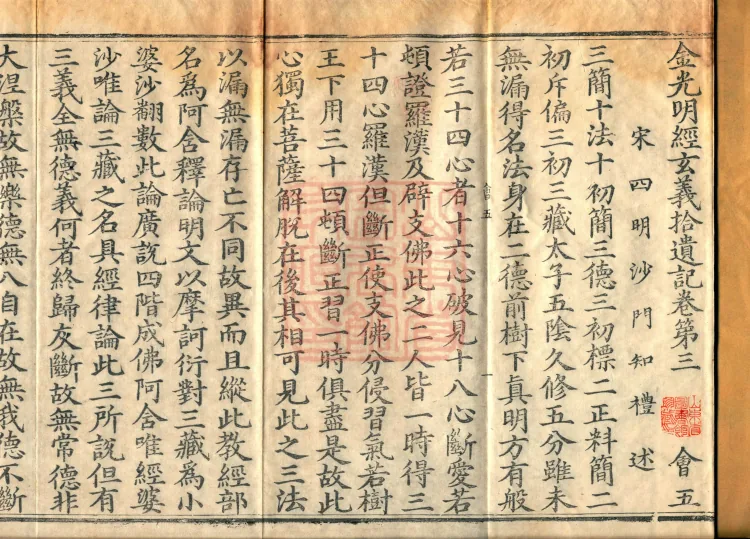 金光明經玄義拾遺記卷第三 會五
宋四明沙門知禮述
三簡十法十初簡三德三初標二正料簡二
初斥偏三初三藏太子五陰久修五分雖未
無漏得名法身在二德前樹下真明方有般
會五 一
若三十四心者十六心破見十八心斷愛若
頓證羅漢及辟支佛此之二人皆一時得三
十四心羅漢但斷正使支佛分侵習氣若樹
王下用三十四頓斷正習一時俱盡是故此
心獨在菩薩解脫在後其相可見此之三法
以漏無漏存亡不同故異而且縱此教經部
名爲阿含釋論明文以摩訶衍對三藏爲小
婆沙翻數此論廣說四階成佛阿含唯經婆
沙唯論三藏之名具經律論此三所說但有
三義全無德義何者終歸灰斷故無常德非
大涅槃故無樂德無八自在故無我德不斷